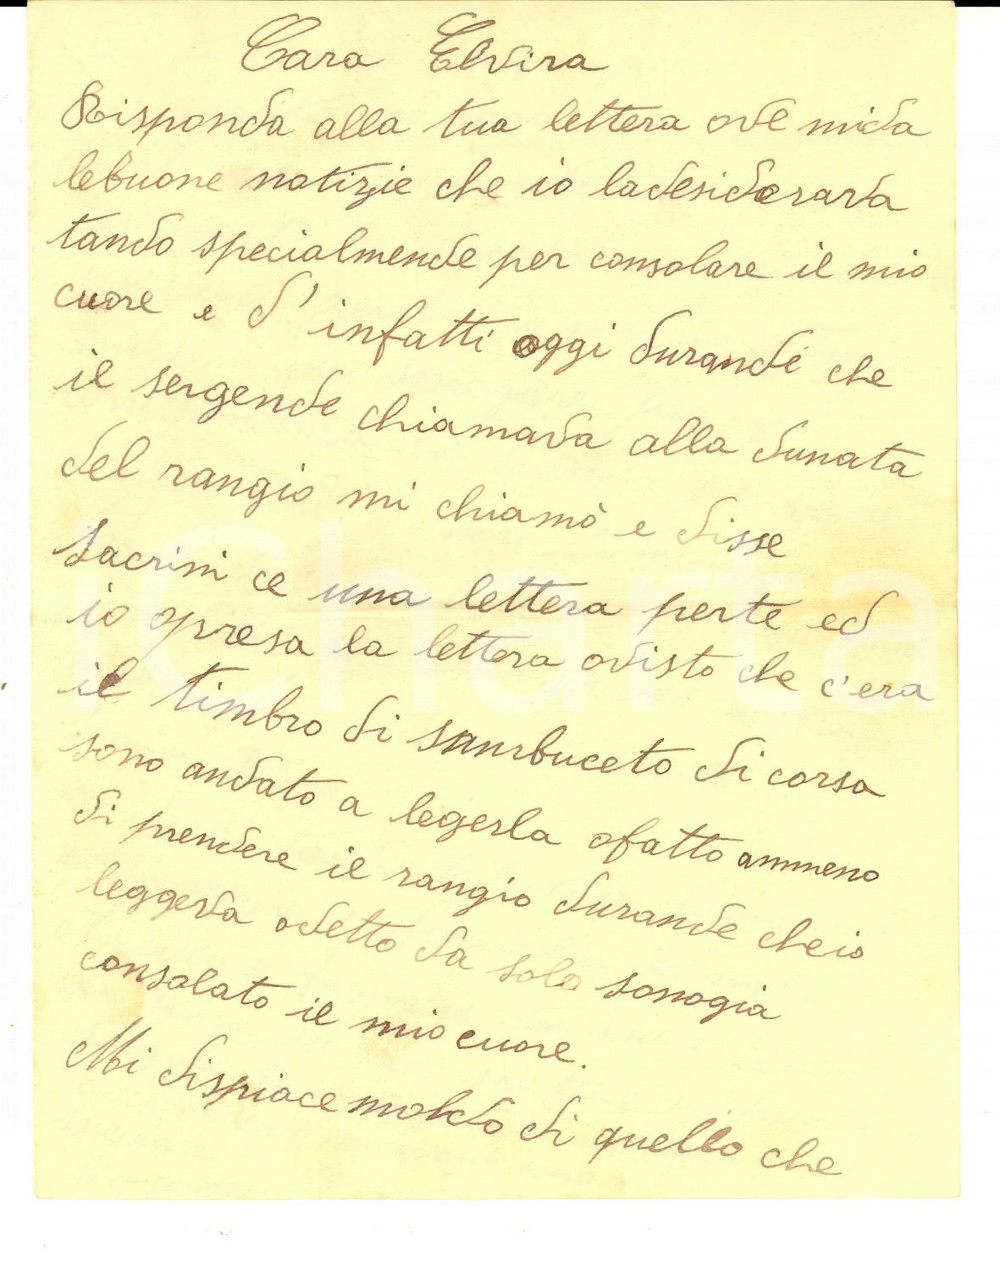 Cara Elvira
Risponda alla tua lettera ove mida
lebuone notizie che io ladesiderava
tando specialmende per consolare il mio
cuore e d'infatti oggi durande che
il sergende chiamava alla dunata
del rangio mi chiamò e disse
Sacrini ce una lettera perte ed
io opresa la lettera ovisto che c'era
il timbro di sambuceto di corsa
sono andato a legerla ofatto ammeno
di prendere il rangio durande cheio
leggeva odetto da solo sonogia
consolato il mio cuore.
Mi dispiace moldo di quello che
iCharta